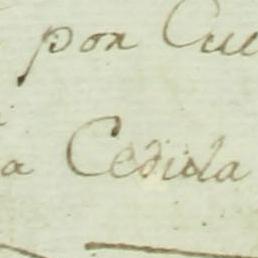 por Cue
a Cedula